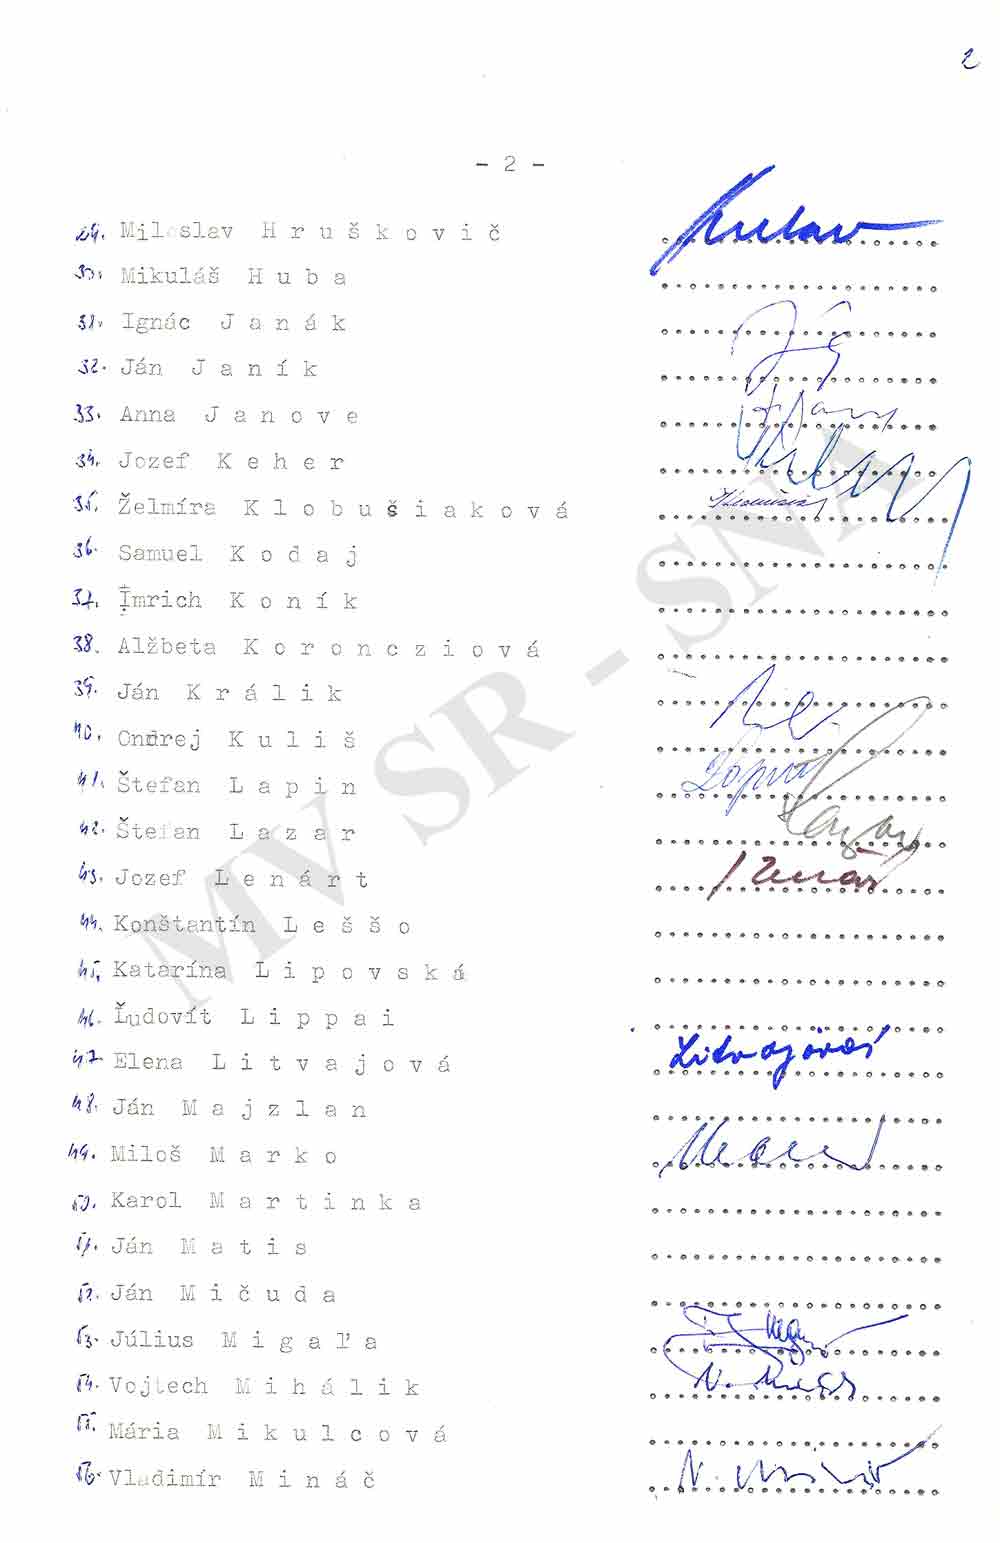 2
- 2 -
29. Miloslav Hruškovič
30. Mikuláš Huba
31. Ignác Janák
32. Ján Janík
33. Anna Janove
34. Jozef Keher
35. Želmíra Klobušiaková
36. Samuel Kodaj
37. Imrich Koník
38. Alžbeta Koroncziová
39. Ján Králik
40. Ondrej Kuliš
41. Štefan Lapin
42. Štefan Lazar
43. Jozef Lenárt
44. Konštantín Leššo
45. Katarína Lipovská
46. Ľudovít Lippai
47. Elena Litvajová Litvajová
48. Ján Majzlan
49. Miloš Marko
50. Karol Martinka
51. Ján Matis
52. Ján Mičuda
53. Július Migaľa
54. Vojtech Mihálik
55. Mária Mikulcová
56. Vladimír Mináč
MV SR - SNA